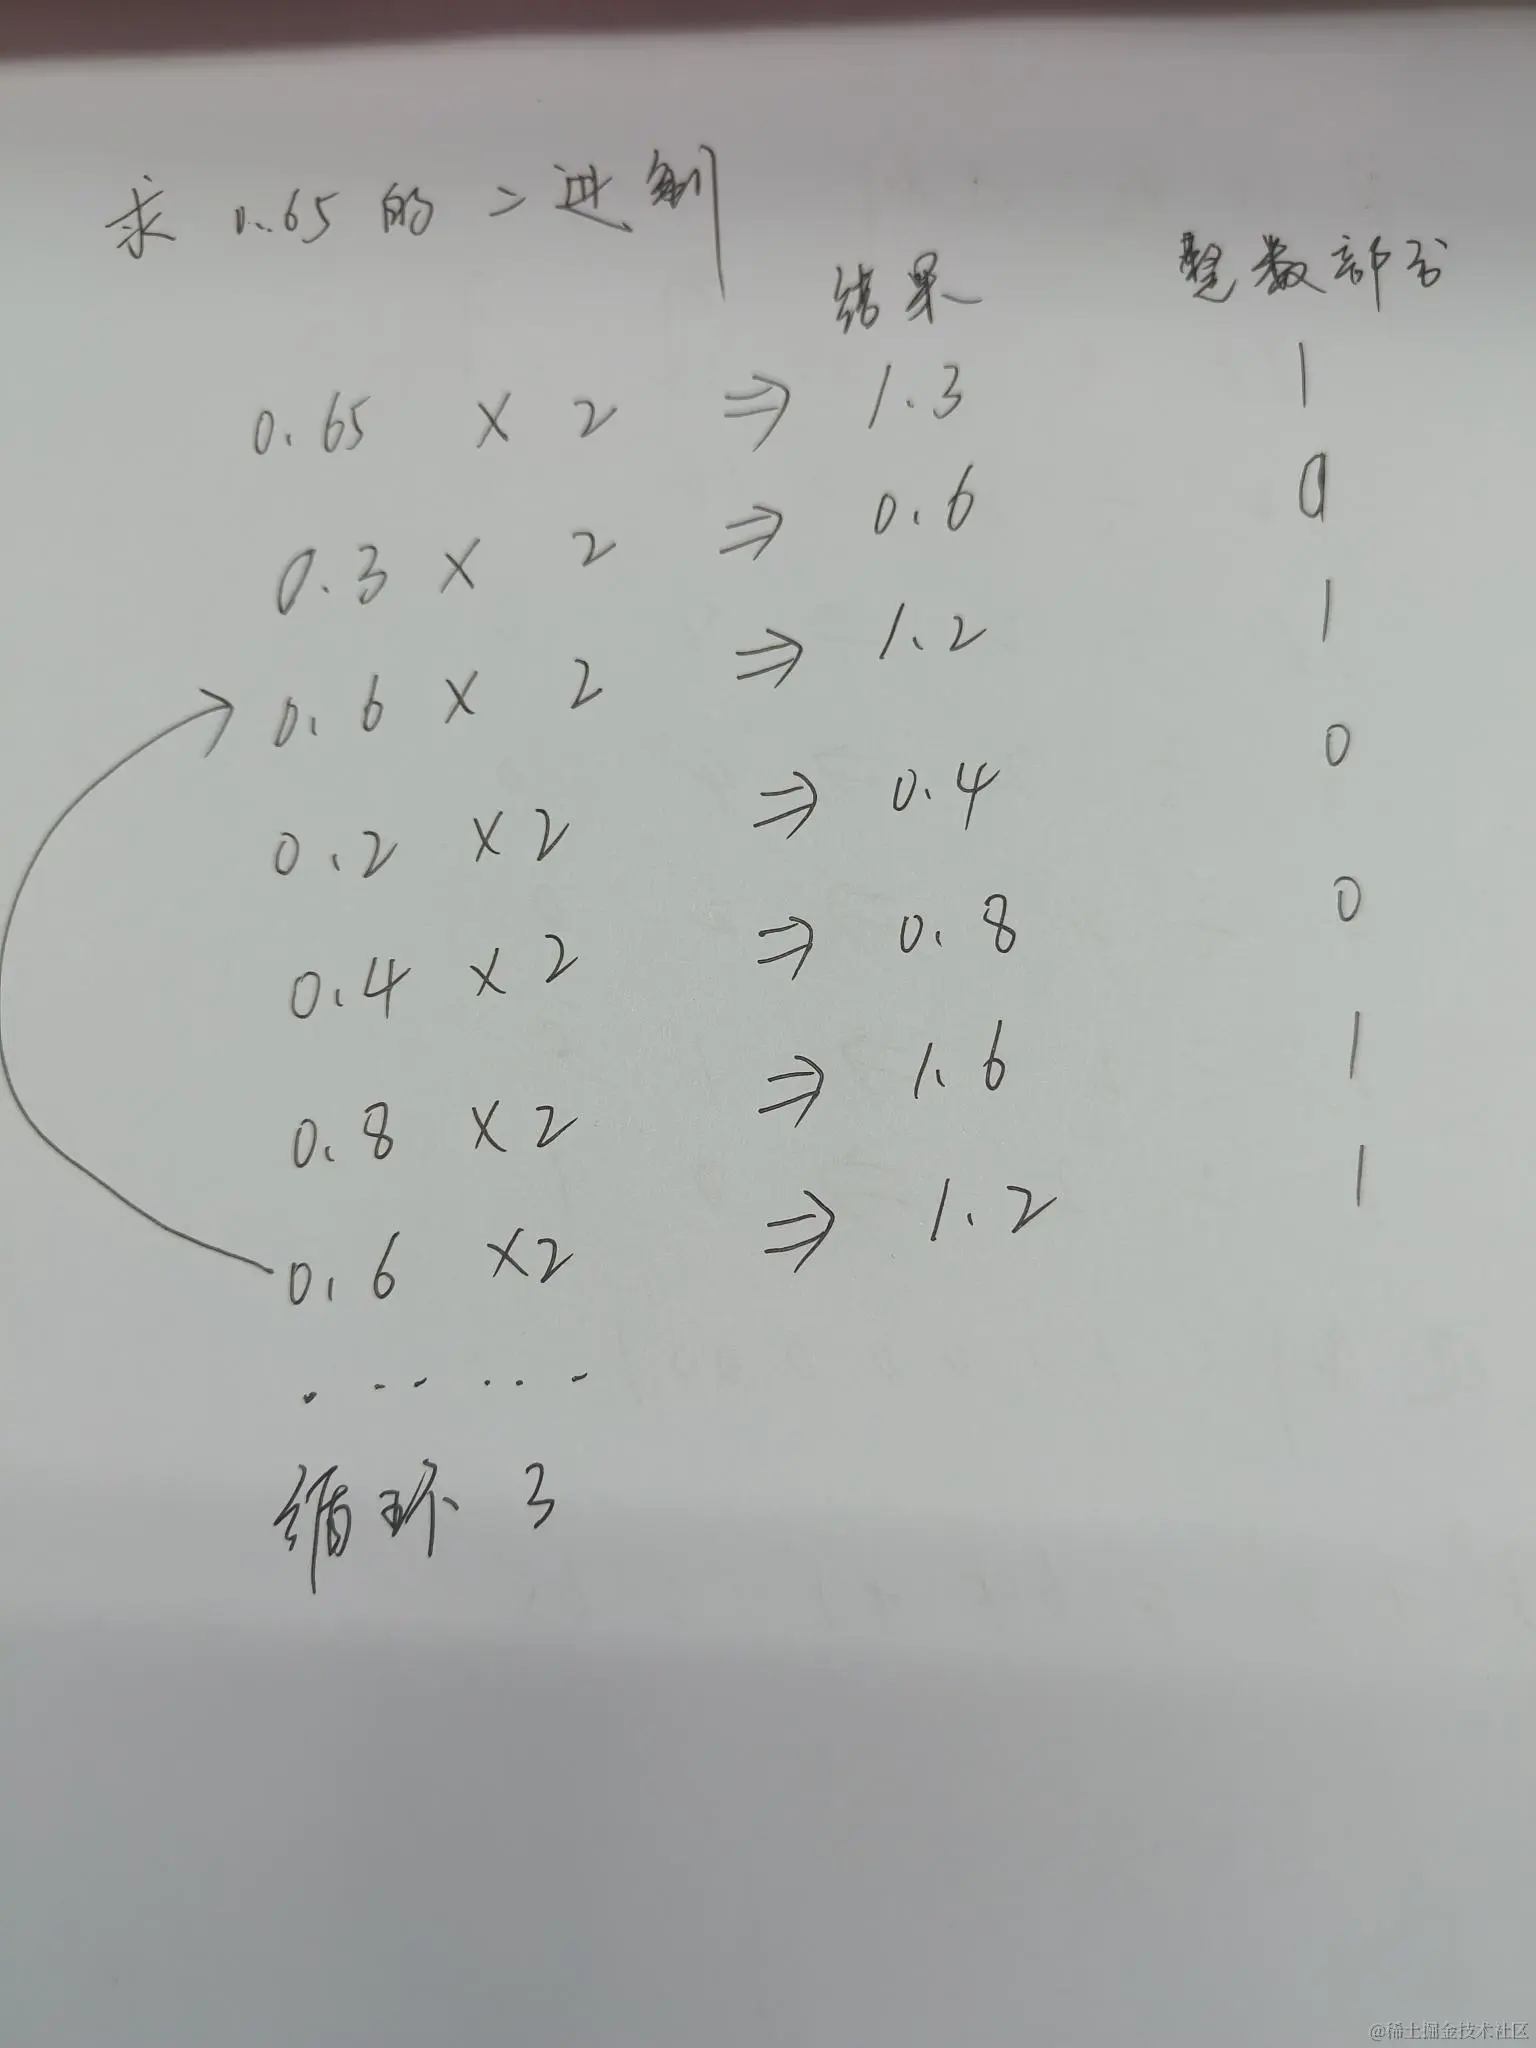 求 0.65 的二进制
结果 整数部分
0.65 × 2 ⇒ 1.3 1
0.3 × 2 ⇒ 0.6 0
0.6 × 2 ⇒ 1.2 1
0.2 × 2 ⇒ 0.4 0
0.4 × 2 ⇒ 0.8 0
0.8 × 2 ⇒ 1.6 1
0.6 × 2 ⇒ 1.2 1
......
循环了
@稀土掘金技术社区